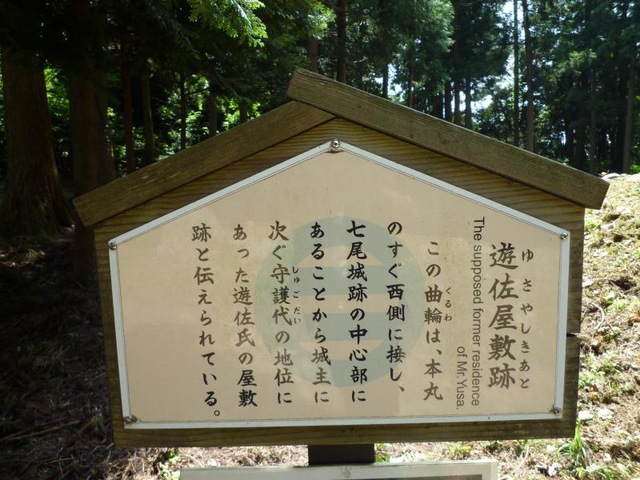 ゆさやしきあと
遊佐屋敷跡
The supposed former residence
of Mr.Yusa.
くるわ
この曲輪は、本丸
のすぐ西側に接し、
七尾城跡の中心部に
あることから城主に
しゅごだい
次ぐ守護代の地位に
あった遊佐氏の屋敷
跡と伝えられている。